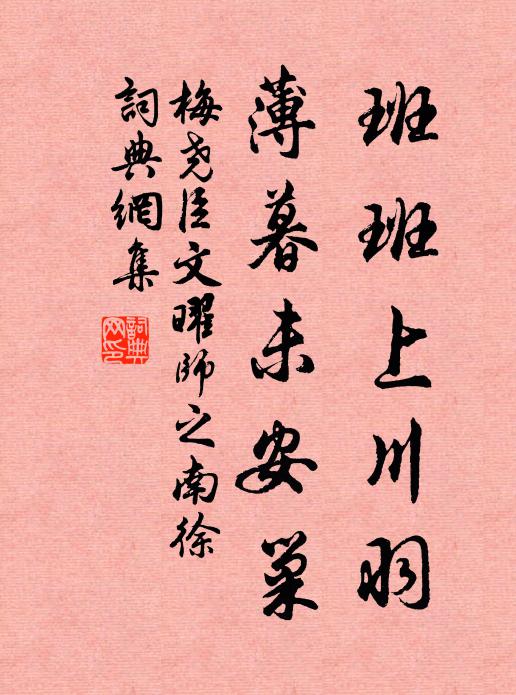 班班上川羽
薄暮未安巢
梅尧臣文曜師之南徐
詞典網集
詞典
网印